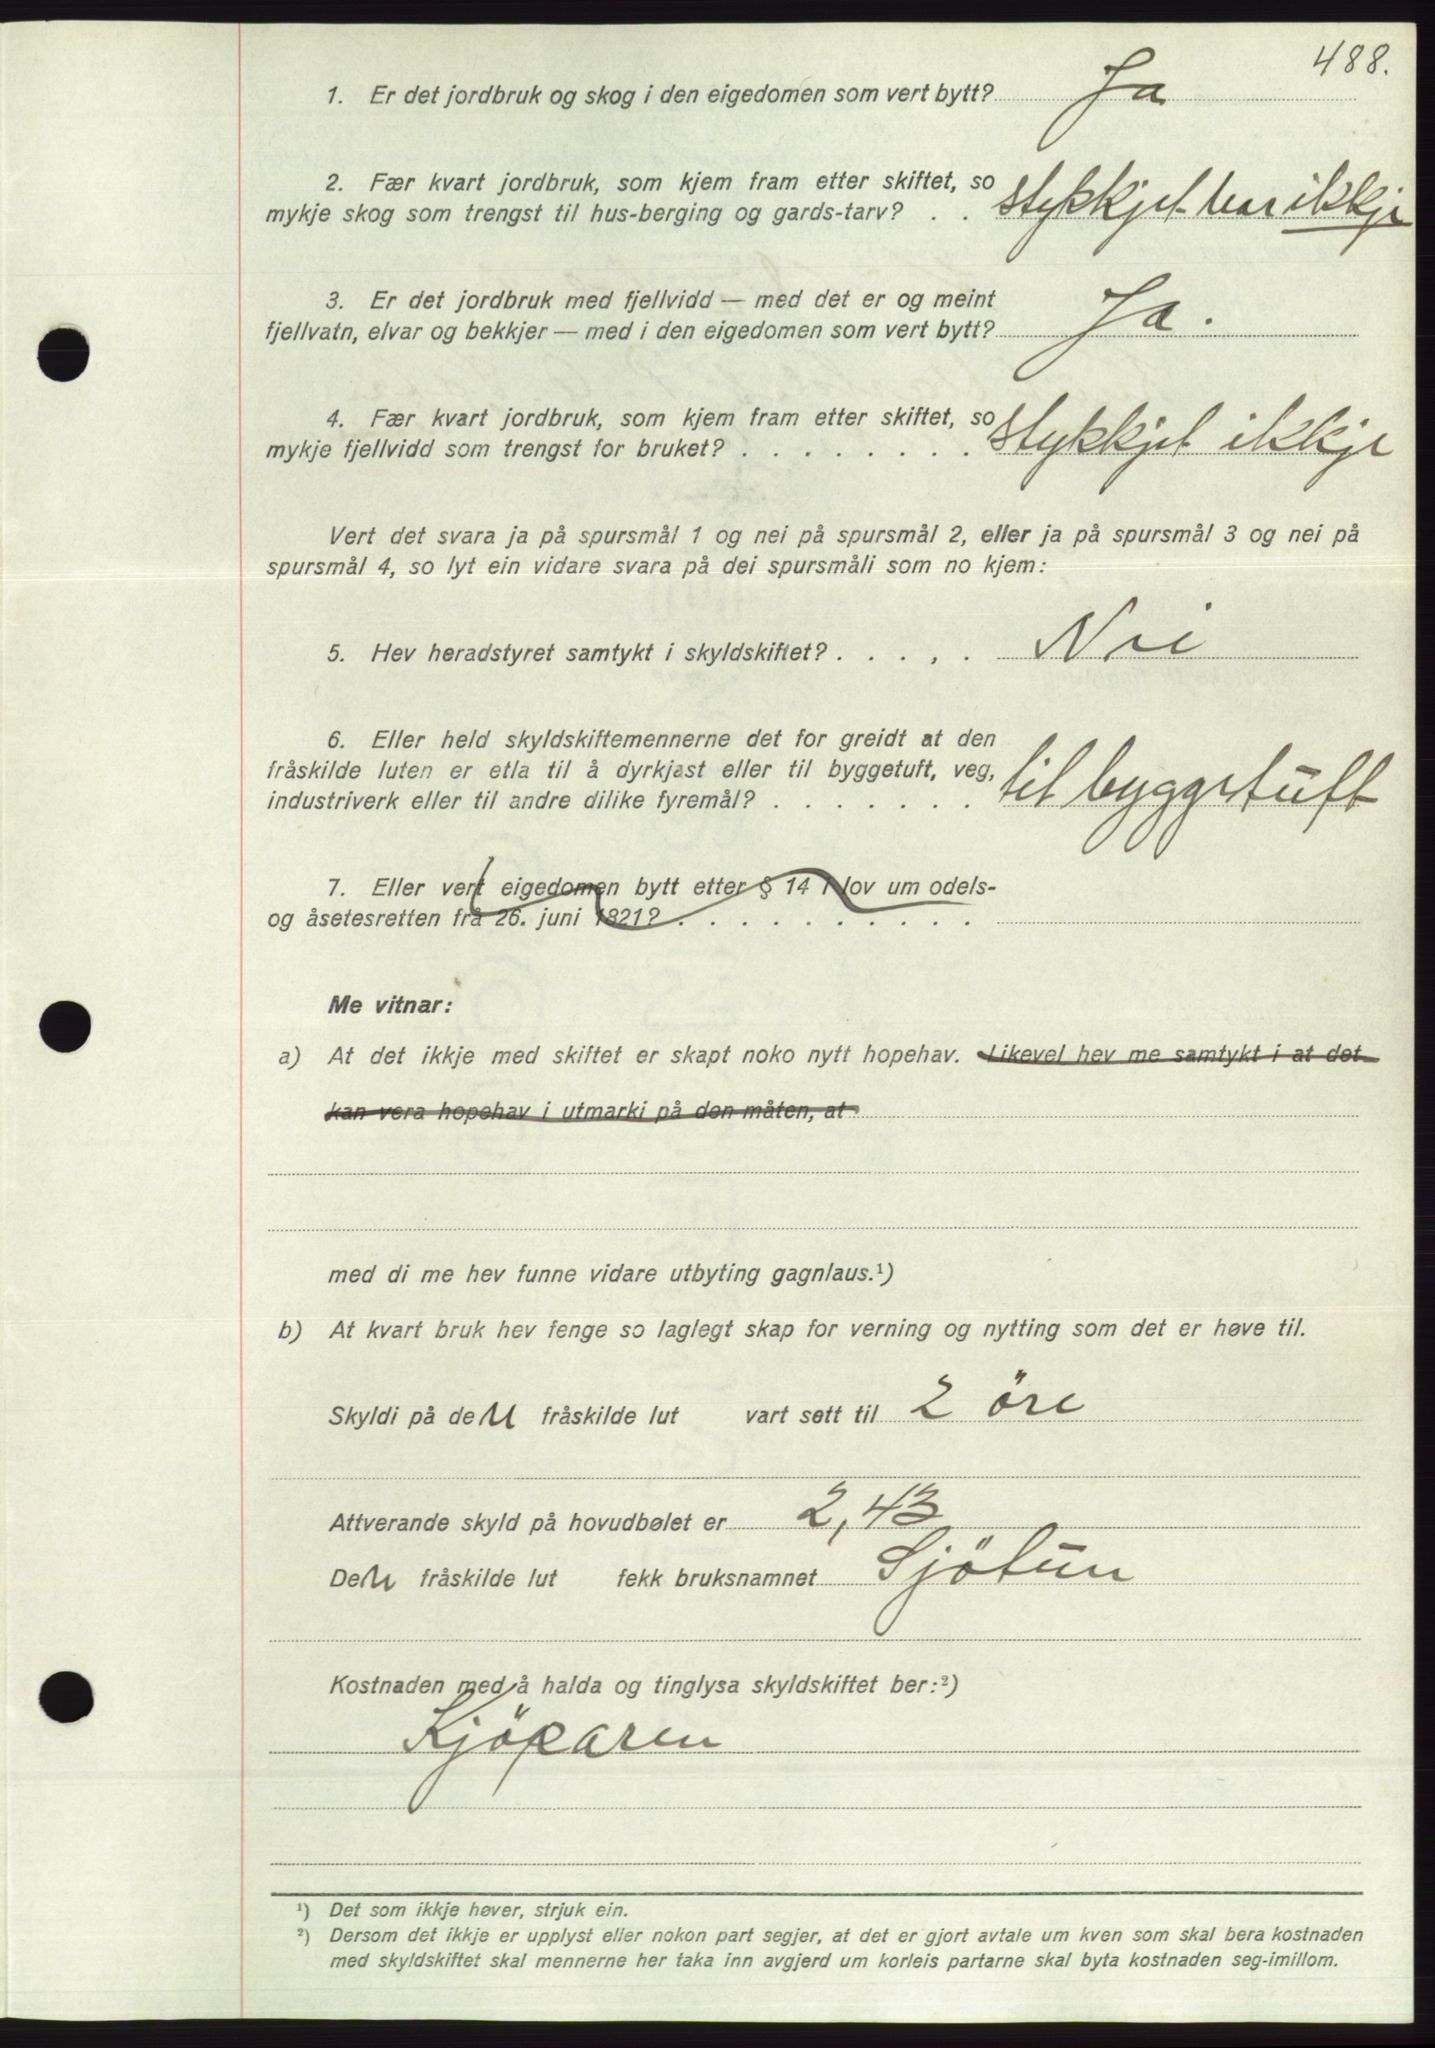 488.
1. Er det jordbruk og skog i den eigedomen som vert bytt? Ja
2. Fær kvart jordbruk, som kjem fram etter skiftet, so
mykje skog som trengst til hus-berging og gards-tarv? . . stykkjet har ikkje
3. Er det jordbruk med fjellvidd — med det er og meint
fjellvatn, elvar og bekkjer — med i den eigedomen som vert bytt? Ja.
4. Fær kvart jordbruk, som kjem fram etter skiftet, so
mykje fjellvidd som trengst for bruket? . . . . . . . . stykkjet ikkje
Vert det svara ja på spursmål 1 og nei på spursmål 2, eller ja på spursmål 3 og nei på
spursmål 4, so lyt ein vidare svara på dei spursmåli som no kjem:
5. Hev heradstyret samtykt i skyldskiftet? . . . . . Nei
6. Eller held skyldskiftemennerne det for greidt at den
fråskilde luten er etla til å dyrkjast eller til byggetuft, veg,
industriverk eller til andre dilike fyremål? . . . . . . . til byggetuft
7. Eller vert eigedomen bytt etter § 14 i lov um odels-
og åsetesretten frå 26. juni 1821? . . . . . . . . . .
Me vitnar:
a) At det ikkje med skiftet er skapt noko nytt hopehav. Likevel hev me samtykt i at det
kan vera hopehav i utmarki på den måten, at
med di me hev funne vidare utbyting gagnlaus.¹)
b) At kvart bruk hev fenge so laglegt skap for verning og nytting som det er høve til.
Skyldi på den fråskilde lut vart sett til 2 öre
Attverande skyld på hovudbølet er 2,43
Den fråskilde lut fekk bruksnamnet Sjötun
Kostnaden med å halda og tinglysa skyldskiftet ber:²)
Kjöparen
¹) Det som ikkje høver, strjuk ein.
²) Dersom det ikkje er upplyst eller nokon part segjer, at det er gjort avtale um kven som skal bera kostnaden
med skyldskiftet skal mennerne her taka inn avgjerd um korleis partarne skal byta kostnaden seg-imillom.